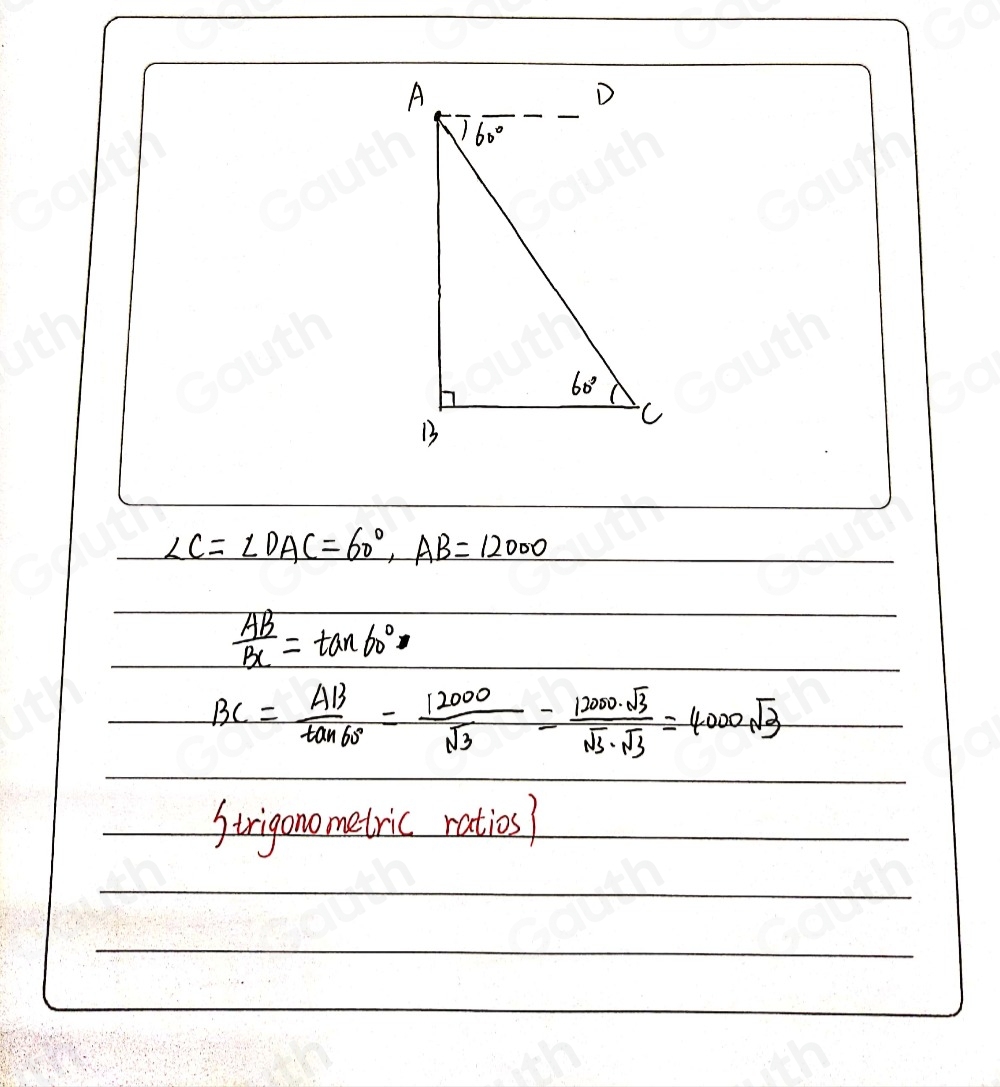 A D
60°
60°
B C
∠C = ∠DAC = 60°, AB = 12000
AB/BC = tan 60°
BC = AB/tan 60° = 12000/√3 = 12000·√3/√3·√3 = 4000√3
{trigonometric ratios}
Gauth